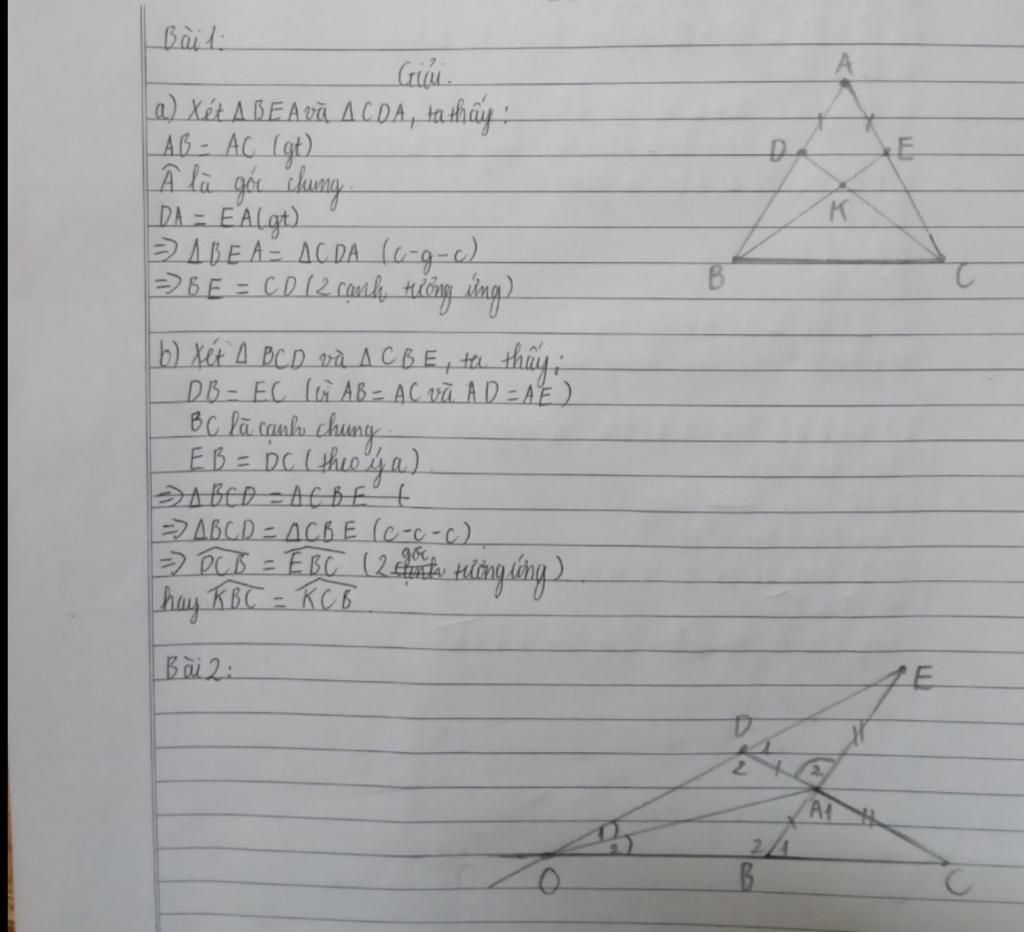 Bài 1:
Giải.
a) Xét ΔBEA và ΔCDA, ta thấy:
AB = AC (gt)
Â là góc chung.
DA = EA (gt)
=> ΔBEA = ΔCDA (c-g-c)
=> BE = CD (2 cạnh tương ứng)
A
D
E
K
B
C
b) Xét Δ BCD và Δ CBE, ta thấy:
DB = EC (vì AB = AC và AD = AE)
BC là cạnh chung.
EB = DC (theo ý a)
=> ΔBCD = ΔCBE (
=> ΔBCD = ΔCBE (c-c-c)
=> DCB = EBC (2 góc tương ứng)
hay KBC = KCB
Bài 2:
E
D
1
2
2
A1
1
2
2 1
O
B
C